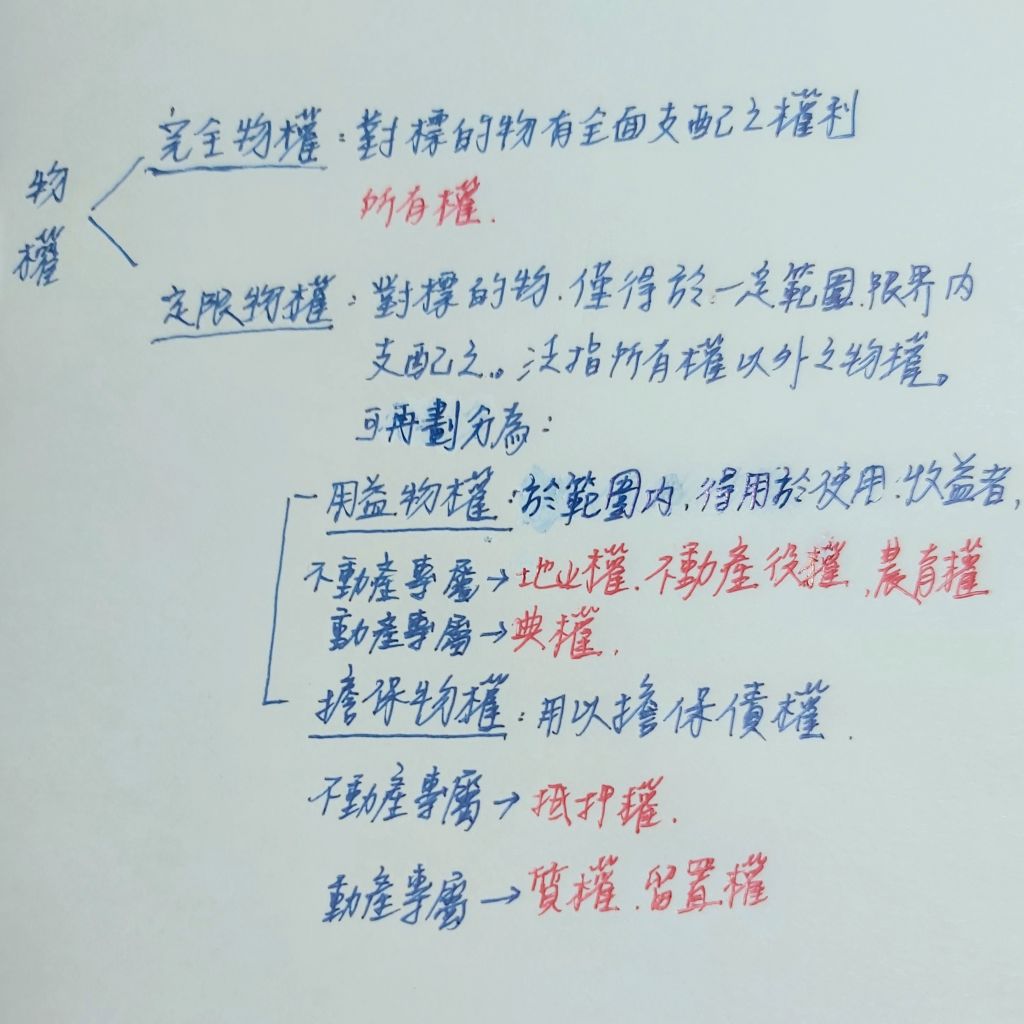 物權
完全物權：對標的物有全面支配之權利
所有權.
定限物權：對標的物、僅得於一定範圍、限界內
支配之。泛指所有權以外之物權。
可再劃分為：
用益物權：於範圍內、得用於使用、收益者,
不動產專屬→地上權、不動產役權、農育權
動產專屬→典權.
擔保物權：用以擔保債權.
不動產專屬→抵押權.
動產專屬→質權、留置權